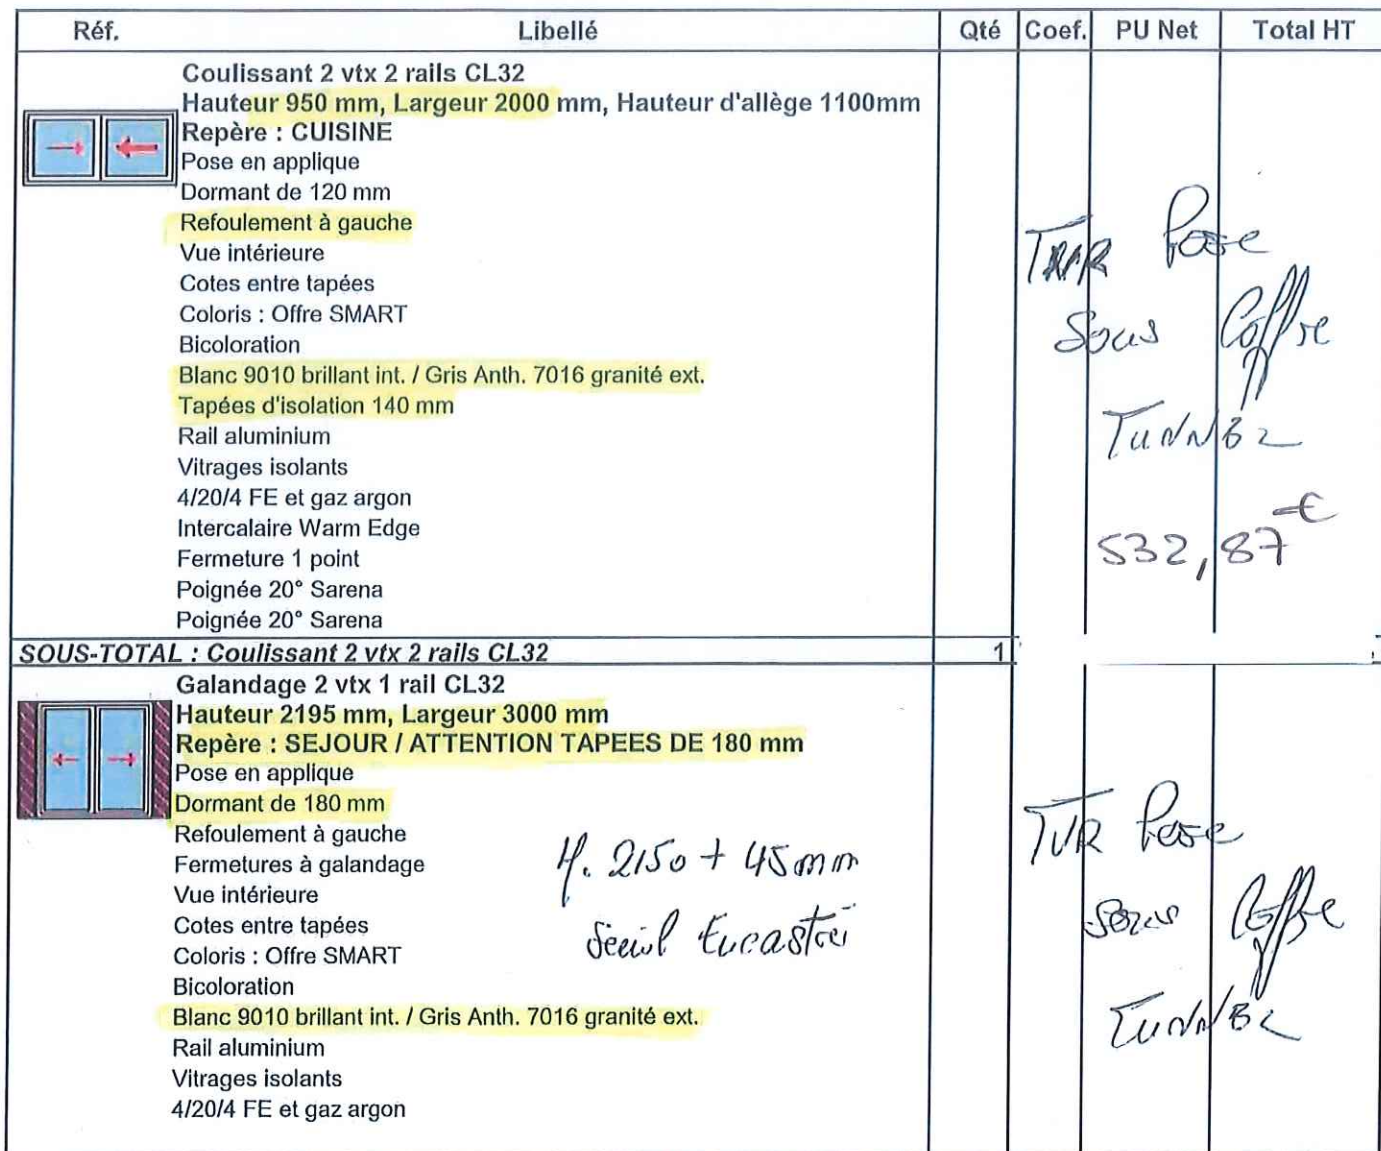 Réf. Libellé Qté Coef. PU Net Total HT
Coulissant 2 vtx 2 rails CL32
Hauteur 950 mm, Largeur 2000 mm, Hauteur d'allège 1100mm
Repère : CUISINE
Pose en applique
Dormant de 120 mm
Refoulement à gauche
Vue intérieure
Cotes entre tapées
Coloris : Offre SMART
Bicoloration
Blanc 9010 brillant int. / Gris Anth. 7016 granité ext.
Tapées d'isolation 140 mm
Rail aluminium
Vitrages isolants
4/20/4 FE et gaz argon
Intercalaire Warm Edge
Fermeture 1 point
Poignée 20° Sarena
Poignée 20° Sarena
Pose
Sous Coffre
TUNNEL
532,87 €
SOUS-TOTAL : Coulissant 2 vtx 2 rails CL32 1
Galandage 2 vtx 1 rail CL32
Hauteur 2195 mm, Largeur 3000 mm
Repère : SEJOUR / ATTENTION TAPEES DE 180 mm
Pose en applique
Dormant de 180 mm
Refoulement à gauche
Fermetures à galandage
Vue intérieure
Cotes entre tapées
Coloris : Offre SMART
Bicoloration
Blanc 9010 brillant int. / Gris Anth. 7016 granité ext.
Rail aluminium
Vitrages isolants
4/20/4 FE et gaz argon
H. 2150 + 45 mm
Seuil Encastré
TVR Pose
Sous Coffre
TUNNEL